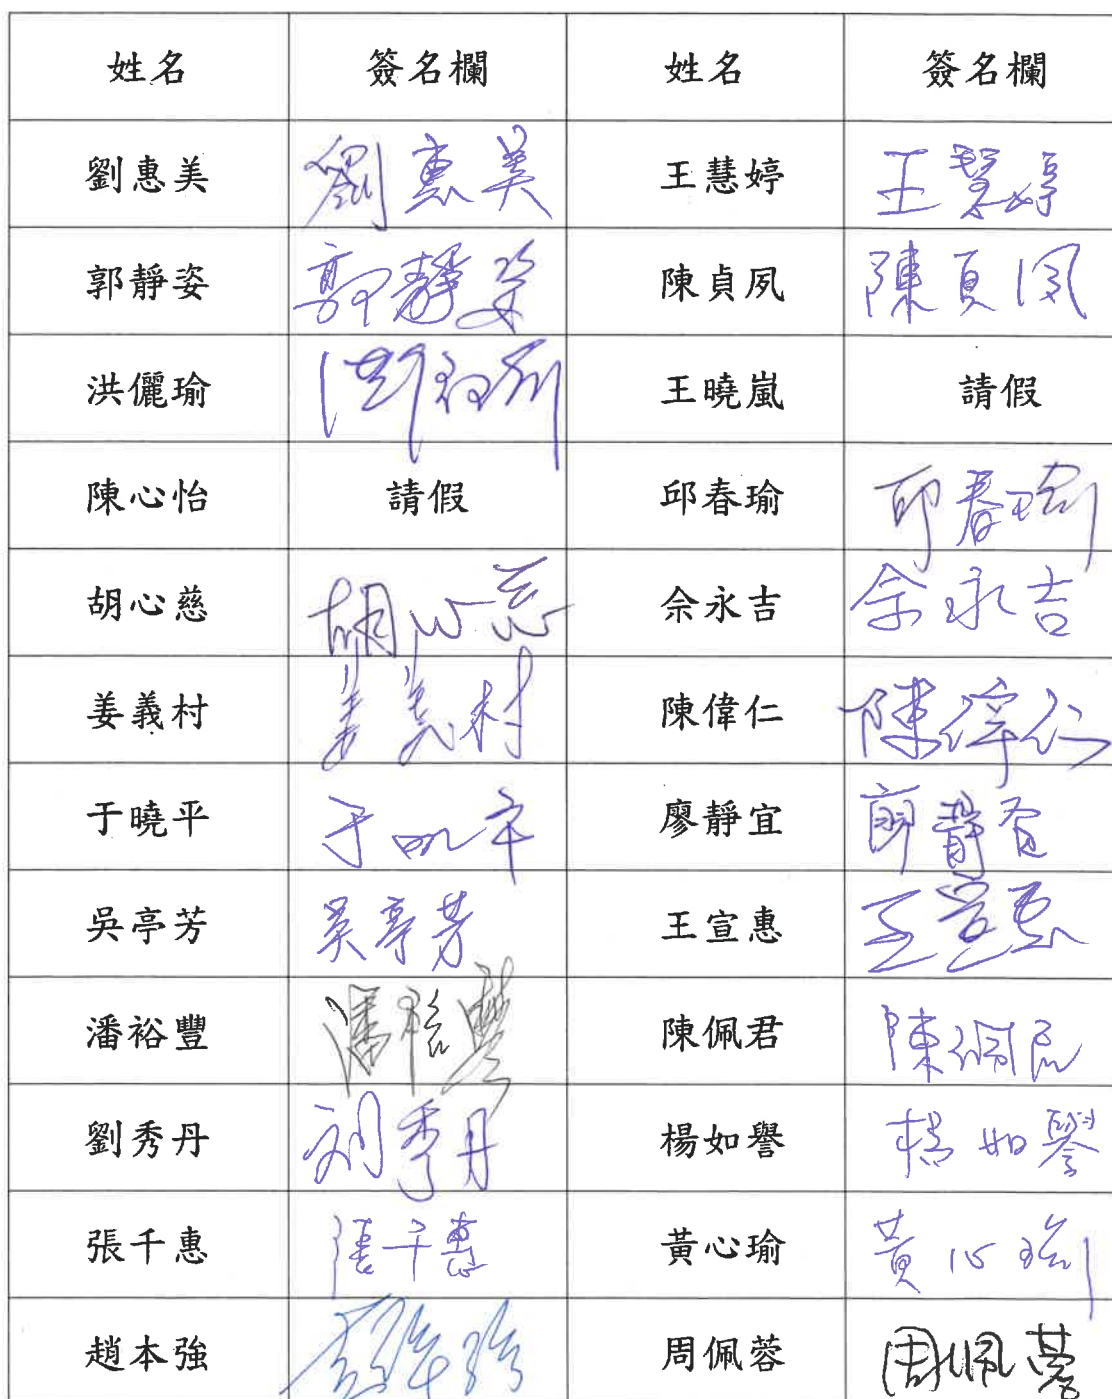 姓名 簽名欄 姓名 簽名欄
劉惠美 劉惠美 王慧婷 王慧婷
郭靜姿 郭靜姿 陳貞夙 陳貞夙
洪儷瑜 洪儷瑜 王曉嵐 請假
陳心怡 請假 邱春瑜 邱春瑜
胡心慈 胡心慈 佘永吉 佘永吉
姜義村 姜義村 陳偉仁 陳偉仁
于曉平 于曉平 廖靜宜 廖靜宜
吳亭芳 吳亭芳 王宣惠 王宣惠
潘裕豐 潘裕豐 陳佩君 陳佩君
劉秀丹 刘秀丹 楊如譽 楊如譽
張千惠 張千惠 黃心瑜 黃心瑜
趙本強 趙本強 周佩蓉 周佩蓉